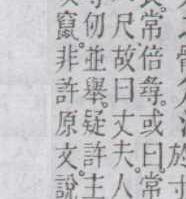 於寸
常倍尋。或曰。常
尺故曰丈夫。人
仞並舉。疑許主
竄非許原文。說